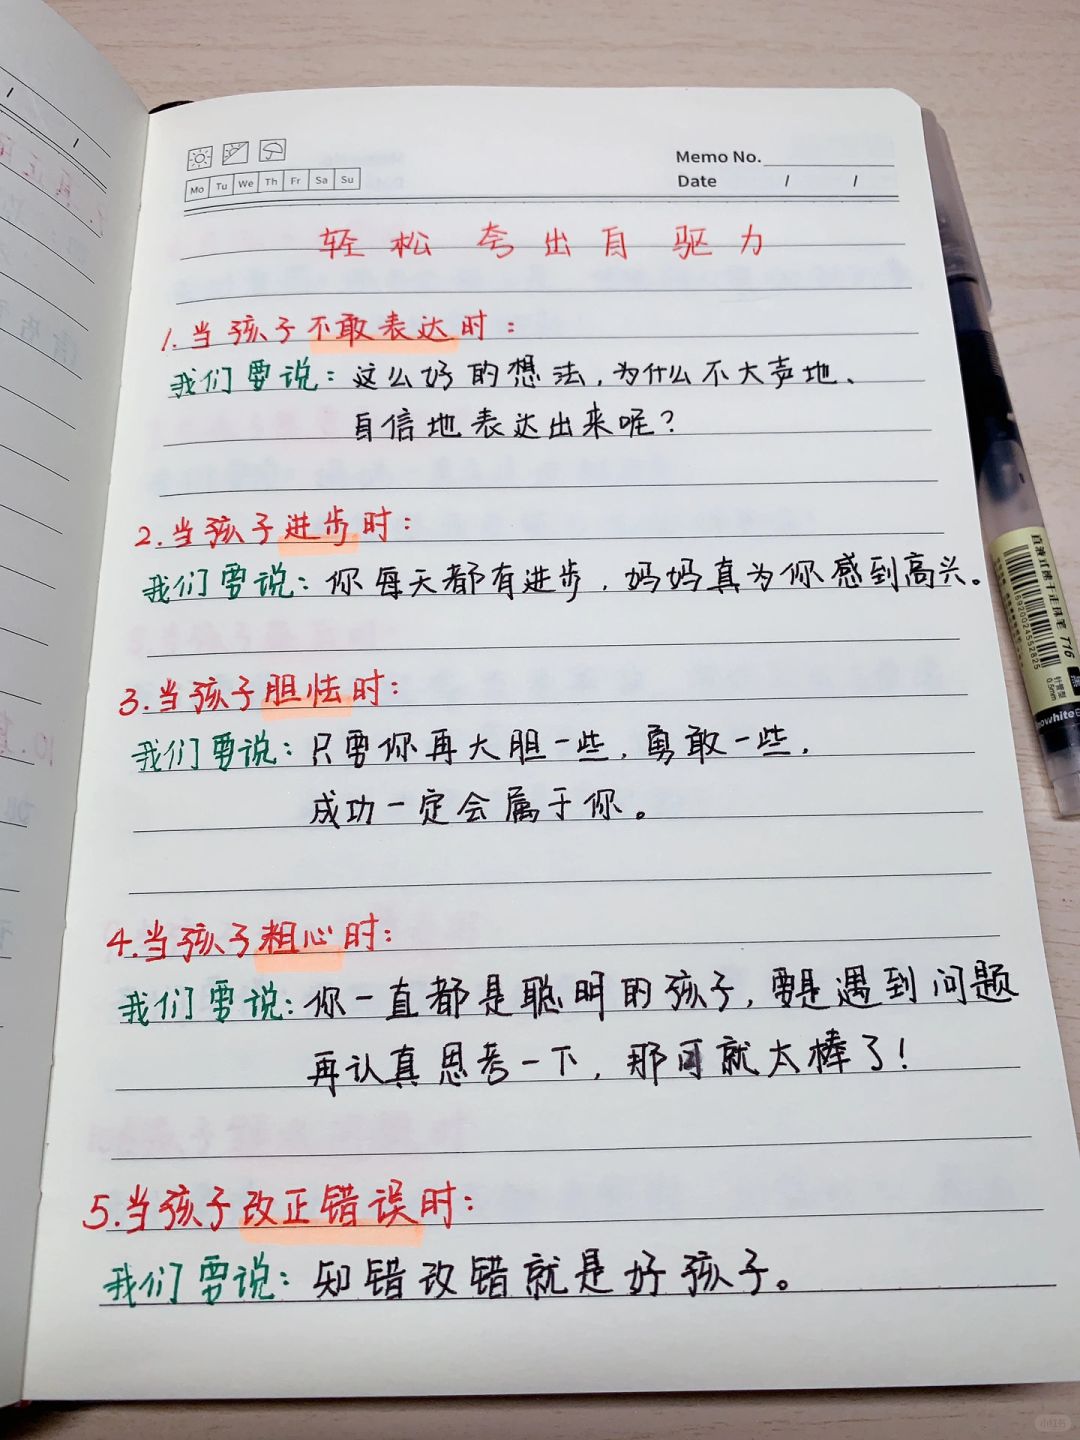 Memo No.
Mo Tu We Th Fr Sa Su
Date / /
轻松夸出自驱力
1.当孩子不敢表达时：
我们要说：这么好的想法，为什么不大声地、
自信地表达出来呢？
2.当孩子进步时：
我们要说：你每天都有进步，妈妈真为你感到高兴。
3.当孩子胆怯时：
我们要说：只要你再大胆一些，勇敢一些，
成功一定会属于你。
4.当孩子粗心时：
我们要说：你一直都是聪明的孩子，要是遇到问题
再认真思考一下，那可就太棒了！
5.当孩子改正错误时：
我们要说：知错改错就是好孩子。
直液式走珠笔 T16
6920024552825
黑
针管型
0.5mm
nowhite
小红书